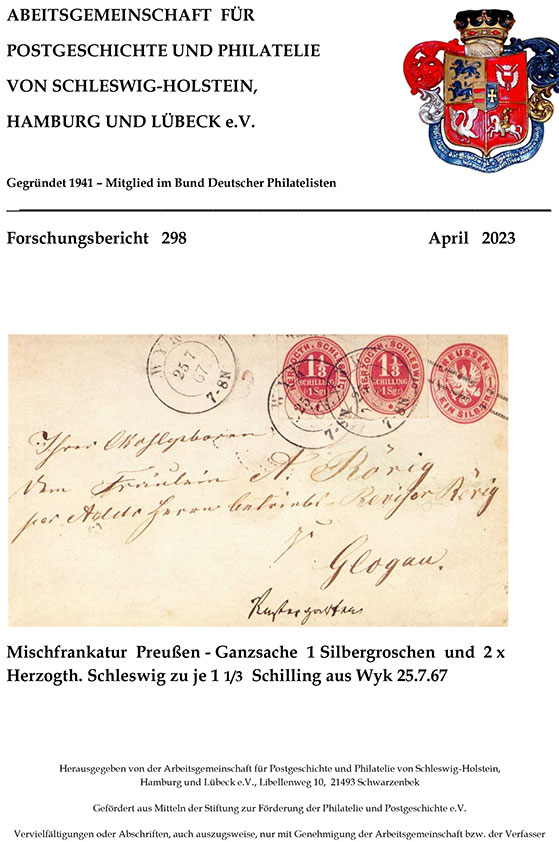 ABEITSGEMEINSCHAFT FÜR
POSTGESCHICHTE UND PHILATELIE
VON SCHLESWIG-HOLSTEIN,
HAMBURG UND LÜBECK e.V.
Gegründet 1941 – Mitglied im Bund Deutscher Philatelisten
Forschungsbericht 298 April 2023
WYK
25 7
67
7-8N
HERZOGTH. SCHLESWIG
1⅓
SCHILLING
1 Sgr
HERZOGTH. SCHLESWIG
1⅓
SCHILLING
1 Sgr
WYK
7-8N
7-8N
PREUSSEN
EIN SILBERGR
Ihrer Wohlgeboren
dem Fräulein A. Rörig
per Adds Herrn betriebs-Revisor Rörig
zu
Glogau.
Mischfrankatur Preußen - Ganzsache 1 Silbergroschen und 2 x
Herzogth. Schleswig zu je 1 1/3 Schilling aus Wyk 25.7.67
Herausgegeben von der Arbeitsgemeinschaft für Postgeschichte und Philatelie von Schleswig-Holstein,
Hamburg und Lübeck e.V., Libellenweg 10, 21493 Schwarzenbek
Gefördert aus Mitteln der Stiftung zur Förderung der Philatelie und Postgeschichte e.V.
Vervielfältigungen oder Abschriften, auch auszugsweise, nur mit Genehmigung der Arbeitsgemeinschaft bzw. der Verfasser